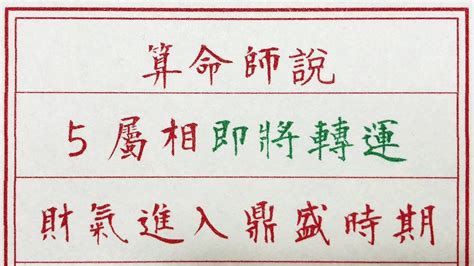 算命師說
5屬相即將轉運
財氣進入鼎盛時期